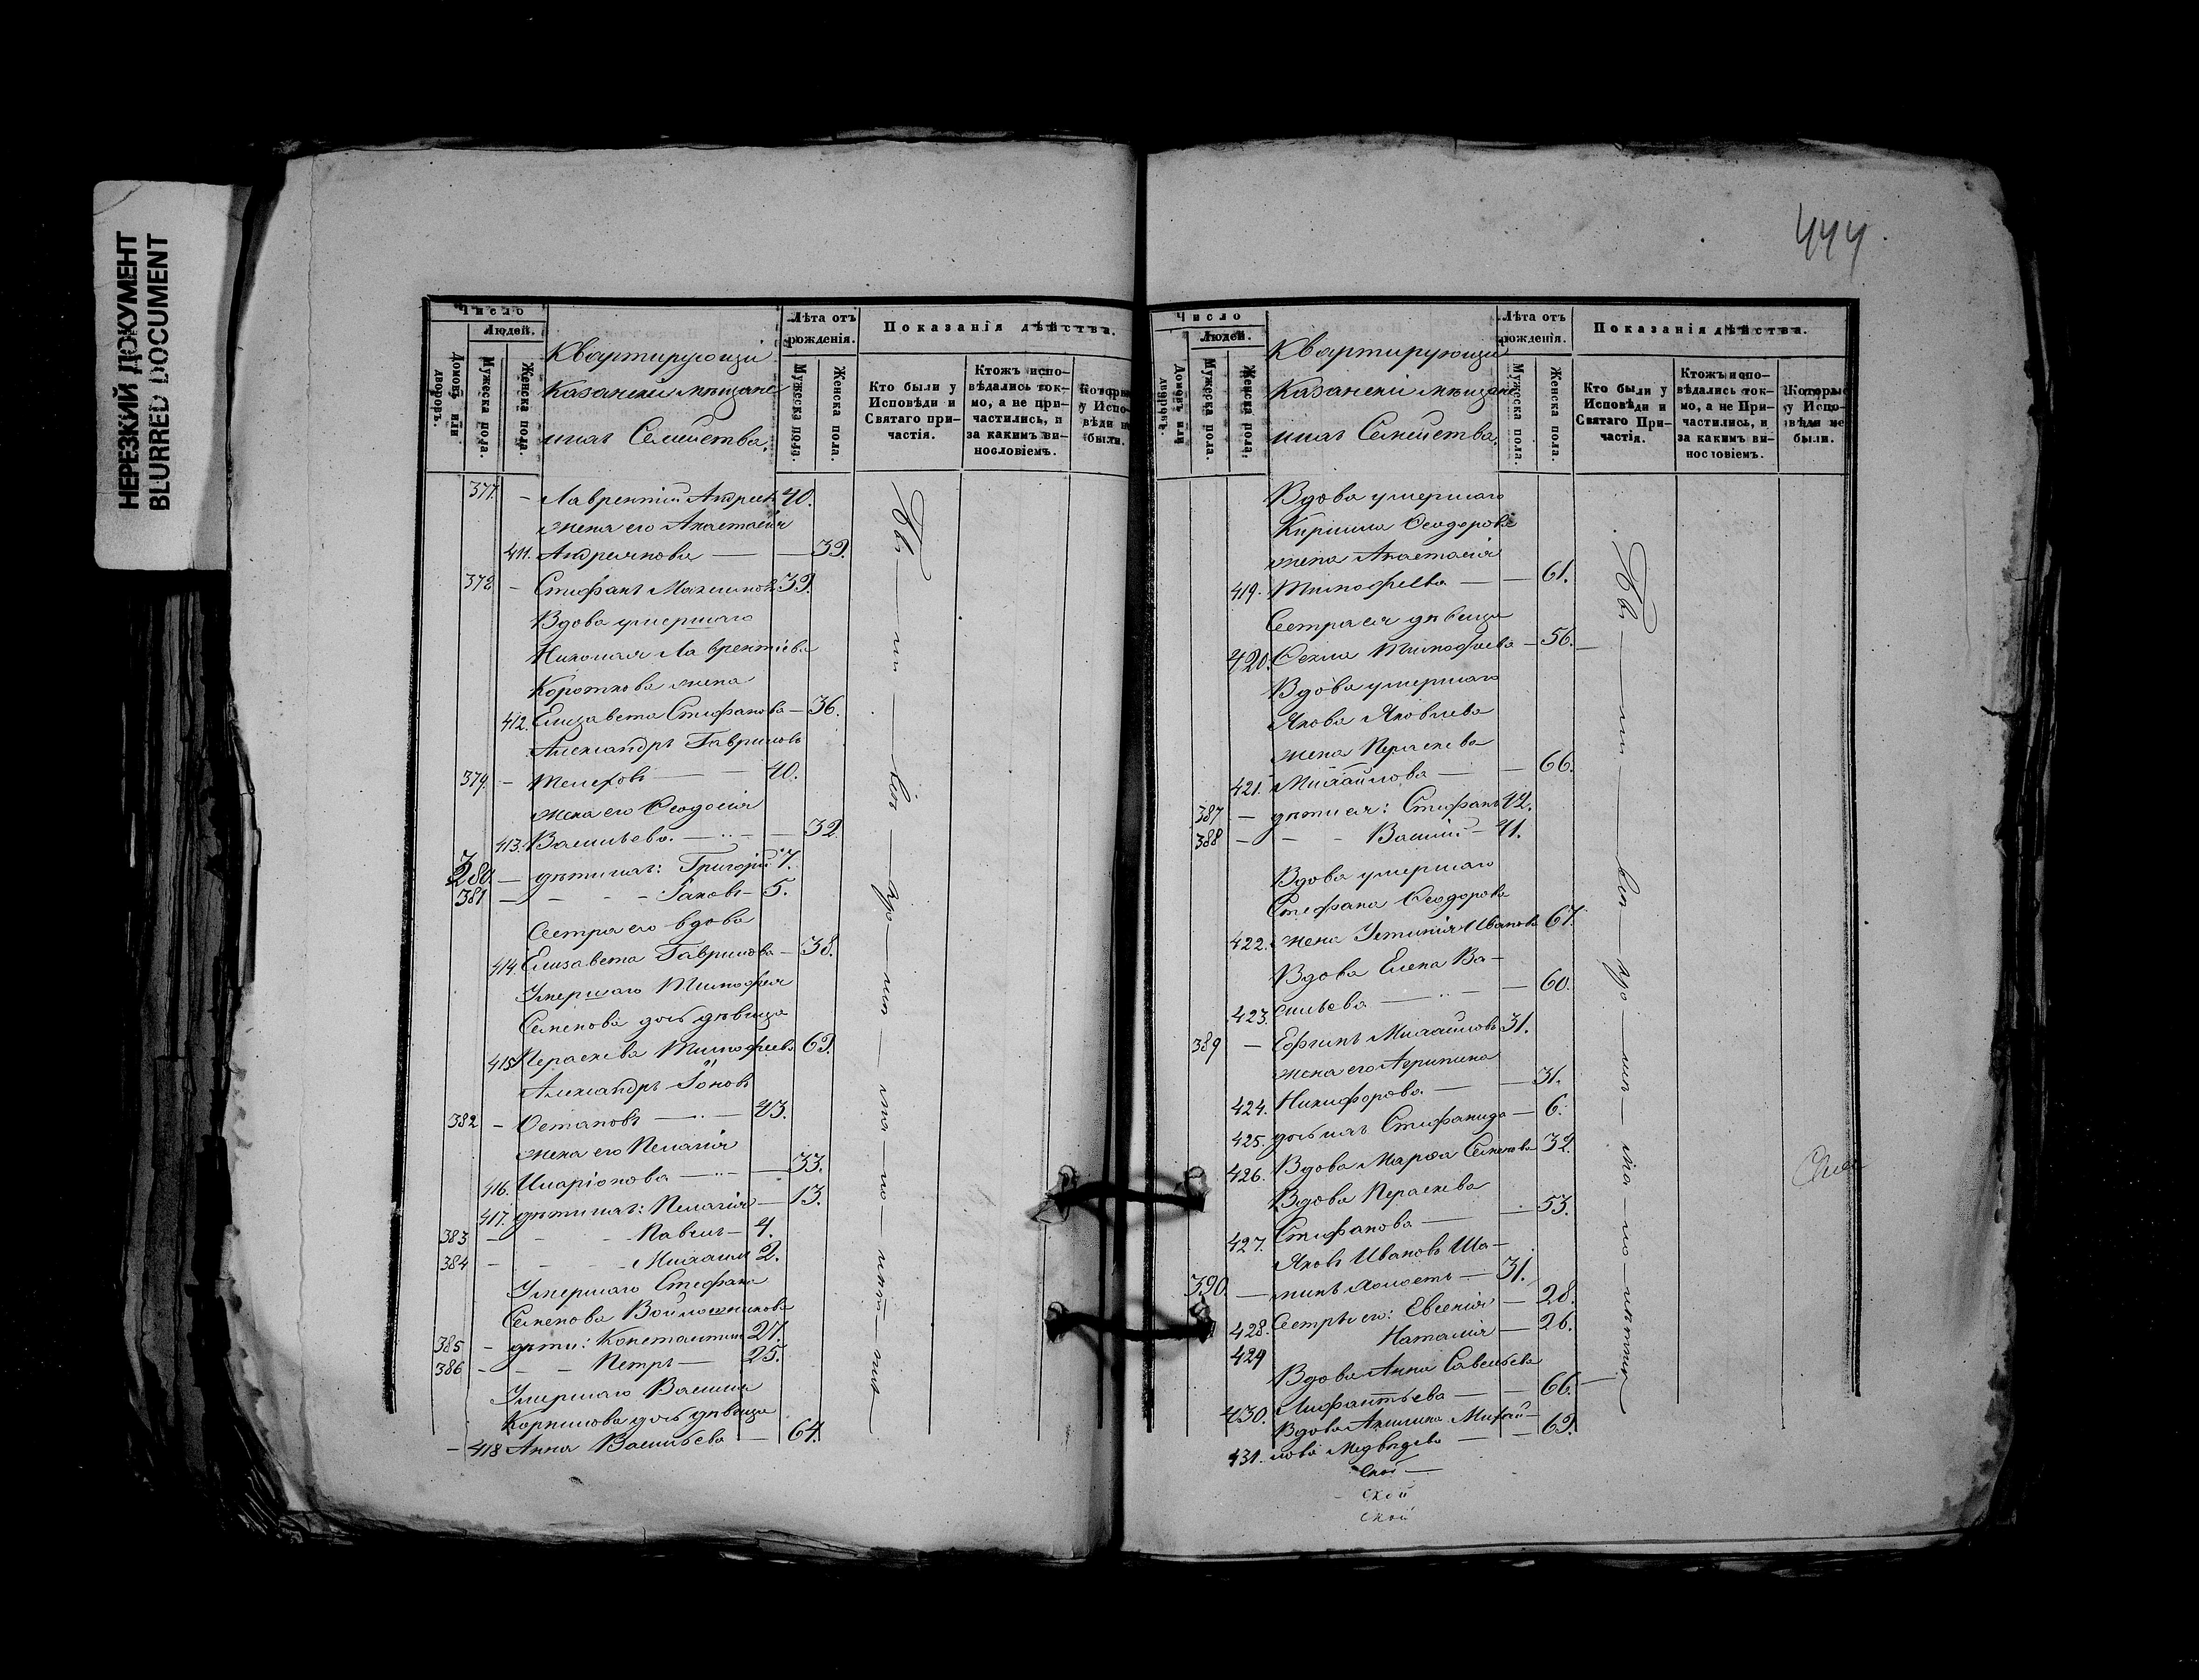 НЕРЕЗКИЙ ДОКУМЕНТ
BLURRED DOCUMENT
444.
Число
Людей.
Домовъ или дворовъ.
Мужеска пола.
Женска пола.
Квартирующіи
Казанскіи мѣщане
ихъ Семейства.
Лѣта отъ рожденія.
Мужеска пола.
Женска пола.
Показанія дѣйства.
Кто были у Исповѣди и Святаго причастія.
Ктожъ исповѣдались токмо, а не причастились, и за какимъ винословіемъ.
Которые у Исповѣди не были.
377. - Лаврентій Андреевъ 40.
жена его Анастасія
411. Андреянова — — 39.
378 - Стефанъ Максимовъ 39.
Вдова умершаго
Николая Лаврентіева
Короткова жена
412. Елизавета Стефанова — 36.
Александръ Гавриловъ
379. - Телеховъ — — 40.
жена его Ѳеодосія
413. Васильева. — — — 32.
380 — дѣти ихъ: Григорій 7.
381 — - - - Іаковъ - 5.
Сестра его вдова
414. Елизавета Гаврилова — 38.
Умершаго Тимоѳея
Семенова дочь дѣвица
415 Пераскева Тимофеева 69.
Александръ Іоновъ
382 - Остаповъ — — 43.
жена его Пелагія
416. Иларіонова — — 33.
417. дѣти ихъ: Пелагія — 13.
383 - - - Павелъ - 4.
384 - - - Михаилъ 2.
Умершаго Стефана
Семенова Войлошникова
385 - дѣти: Константинъ 27.
386 - - - Петръ — 25.
Умершаго Василія
Корнилова дочь дѣвица
- 418 Анна Васильева — 64.
Число
Людей.
Домовъ или дворовъ.
Мужеска пола.
Женска пола.
Квартирующіи
Казанскіи мѣщане
ихъ Семейства.
Лѣта отъ рожденія.
Мужеска пола.
Женска пола.
Показанія дѣйства.
Кто были у Исповѣди и Святаго Причастія.
Ктожъ исповѣдались токмо, а не Причастились, и за какимъ винословіемъ.
Которые у Исповѣди не были.
Вдова умершаго
Кирилла Ѳеодорова
жена Анастасія
419. Тимофеева — — 61.
Сестра ея дѣвица
420. Ѳекла Тимофеева — 56.
Вдова умершаго
Якова Яковлева
жена Пераскева
421. Михайлова — — 66.
387 — дѣти ея: Стефанъ 42.
388 - - - Василій - 41.
Вдова умершаго
Стефана Ѳеодорова
422. жена Устинія Иванова 67.
Вдова Елена Ва-
423. сильева — — — 60.
389 - Ефимъ Михайловъ 31.
жена его Агрипина
424. Никифорова. — — 31.
425. дочь ихъ Стефанида — 6.
426. Вдова Марѳа Семенова 32.
Вдова Пераскева
427. Стефанова — — 53.
Яковъ Ивановъ Ша-
390. — нинъ холостъ — 31.
428. Сестры его: Евгенія — 28.
429 Наталія — 26.
Вдова Анна Савельева
430. Лифантьева — — 66.
Вдова Акилина Михай-
431. лова Медвѣдева — — 69.
ской
ской